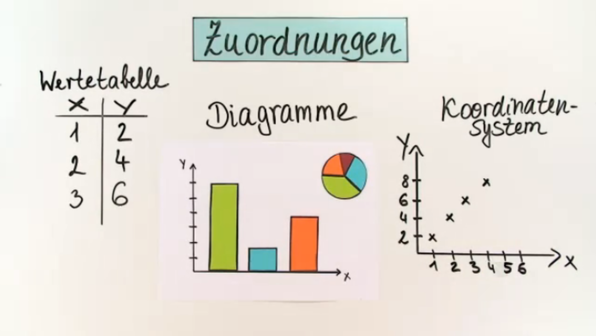 Zuordnungen
Wertetabelle
X Y
1 2
2 4
3 6
Diagramme
Y
X
Koordinaten-
system
Y
8
6
4
2
1 2 3 4 5 6
X